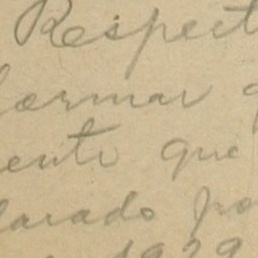 Respect
formar q
ente que
larado po
1929